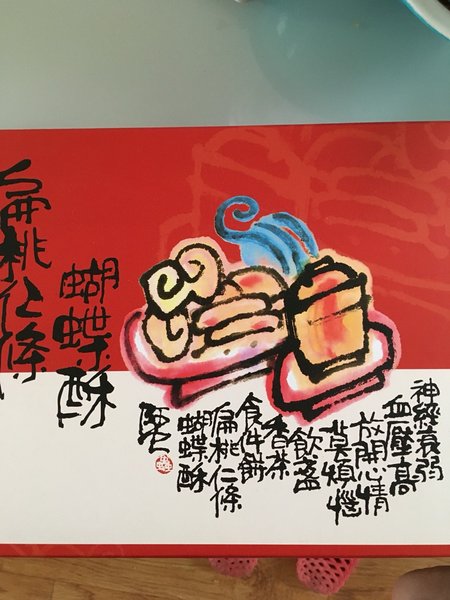 扁桃仁條
蝴蝶酥
神經衰弱
血壓高
放開心情
莫煩惱
飲盞
香茶
食件餅
扁桃仁條
蝴蝶酥